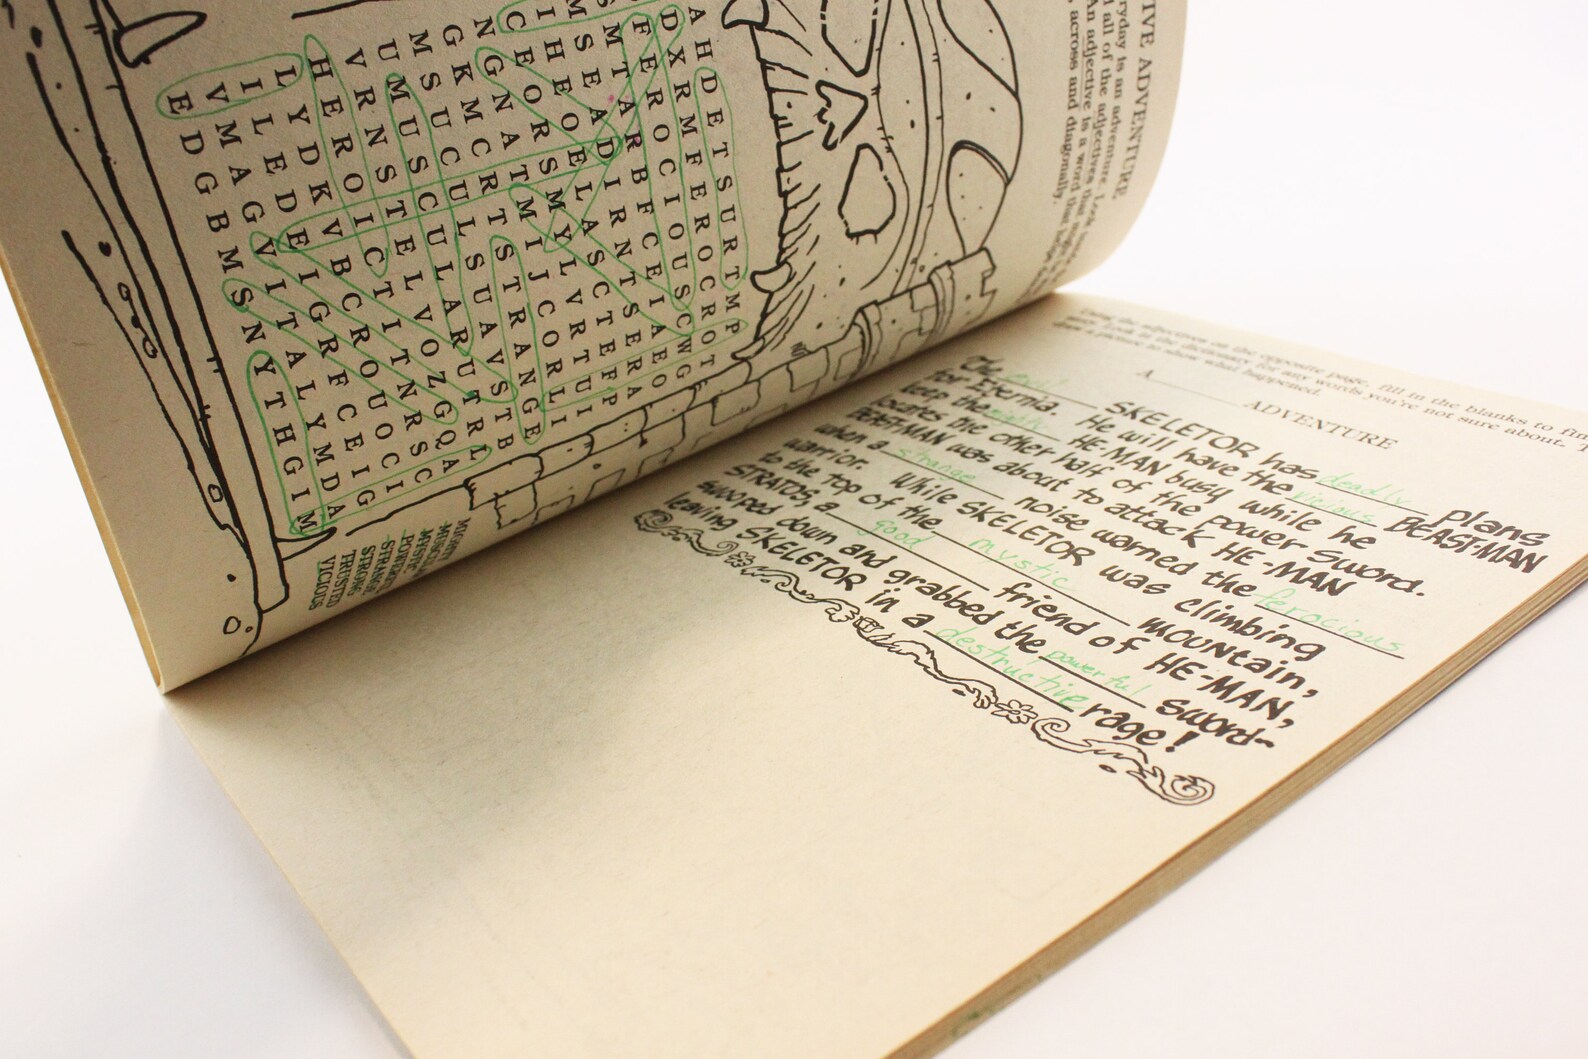 IVE ADVENTURE
ryday is an adventure.
all of the adjectives. Look
An adjective is a word that
across and diagonally.
AHDETSURTMP
DXRMFEROCROT
FEROCIOUSCWG
MTARBFCEIAEO
MSEADIRNTSERA
IHEOELASCTEFP
CEORSMYLVRTUI
NGNATMIJCORLI
GKMCRTSTRANGE
MSUCULSUAVSTB
UMUSCULARUTRL
VRNSTELVOZGQA
HEROICTITNRSC
LYDKVBCROUOCI
ILEDEIGRFCEIG
VMAGVITALYMDA
EDGBMSNYTHGIM
MIGHTY
MUSCULAR
MYSTIC
POWERFUL
STRANGE
STRONG
TRUSTED
VICIOUS
Using the adjectives on the opposite page, fill in the blanks to
Look in the dictionary for any words you're not sure about.
draw a picture to show what happened.
A ADVENTURE
The evil SKELETOR has deadly plans
for Eternia. He will have the vicious BEAST-MAN
keep the mighty HE-MAN busy while he
locates the other half of the power sword.
BEAST-MAN was about to attack HE-MAN
when a strange noise warned the ferocious
warrior. While SKELETOR was climbing
to the top of the mystic MOUNTAIN,
STRATOS, a good friend of HE-MAN,
swooped down and grabbed the powerful sword-
leaving SKELETOR in a destructive rage!